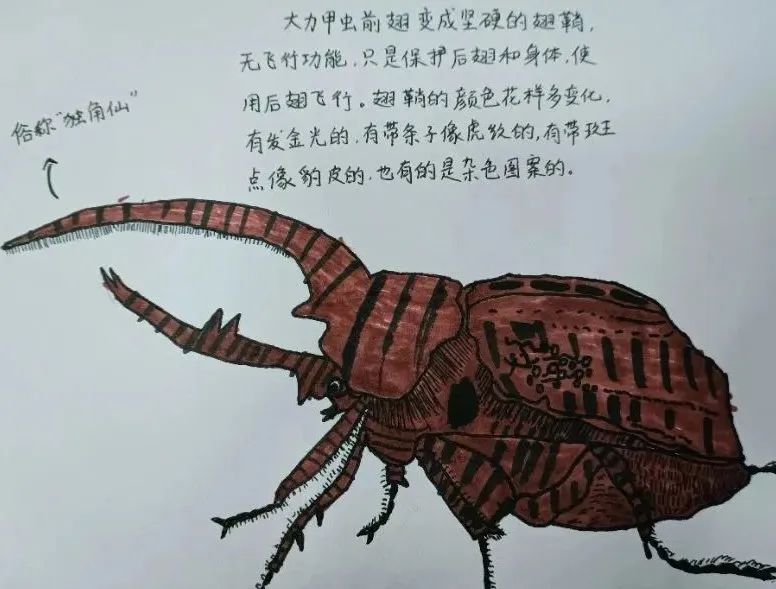 大力甲虫前翅变成坚硬的翅鞘，
无飞行功能，只是保护后翅和身体，使
用后翅飞行。翅鞘的颜色花样多变化，
有发金光的，有带条子像虎纹的，有带斑
点像豹皮的，也有的是杂色图案的。
俗称“独角仙”